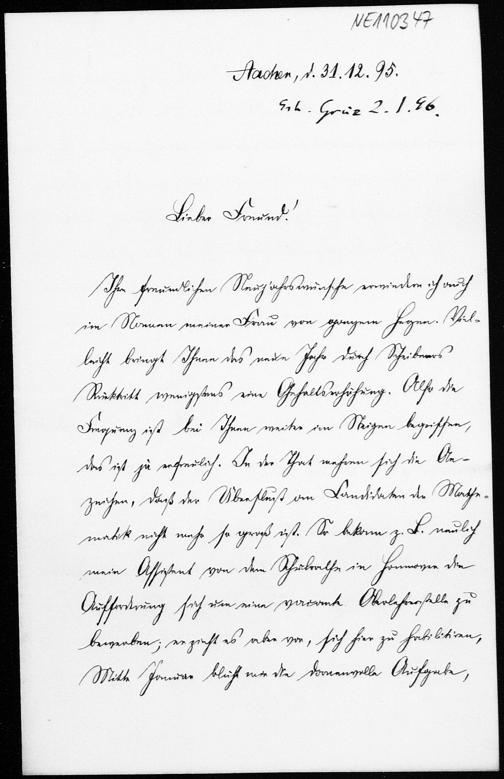 NE110347
Aachen, d. 31.12.95.
Erh. Graz 2.1.96.
Lieber Freund!
Ihre freundlichen Neujahrswünsche erwiedere ich auch
im Namen meiner Frau von ganzem Herzen. Viel-
leicht bringt Ihnen das neue Jahr durch Scheibners
Rücktritt wenigstens eine Gehaltserhöhung. Also die
Frequenz ist bei Ihnen weiter im Steigen begriffen,
das ist ja erfreulich. In der That mehren sich die An-
zeichen, daß der Überfluß an Candidaten der Mathe-
matik nicht mehr so groß ist. So bekam z. B. neulich
mein Assistent von dem Schulrathe in Hannover die
Aufforderung sich um eine vacante Oberlehrerstelle zu
bewerben; er zieht es aber vor, sich hier zu habilitiren,
Mitte Januar blüht mir die dornenvolle Aufgabe,